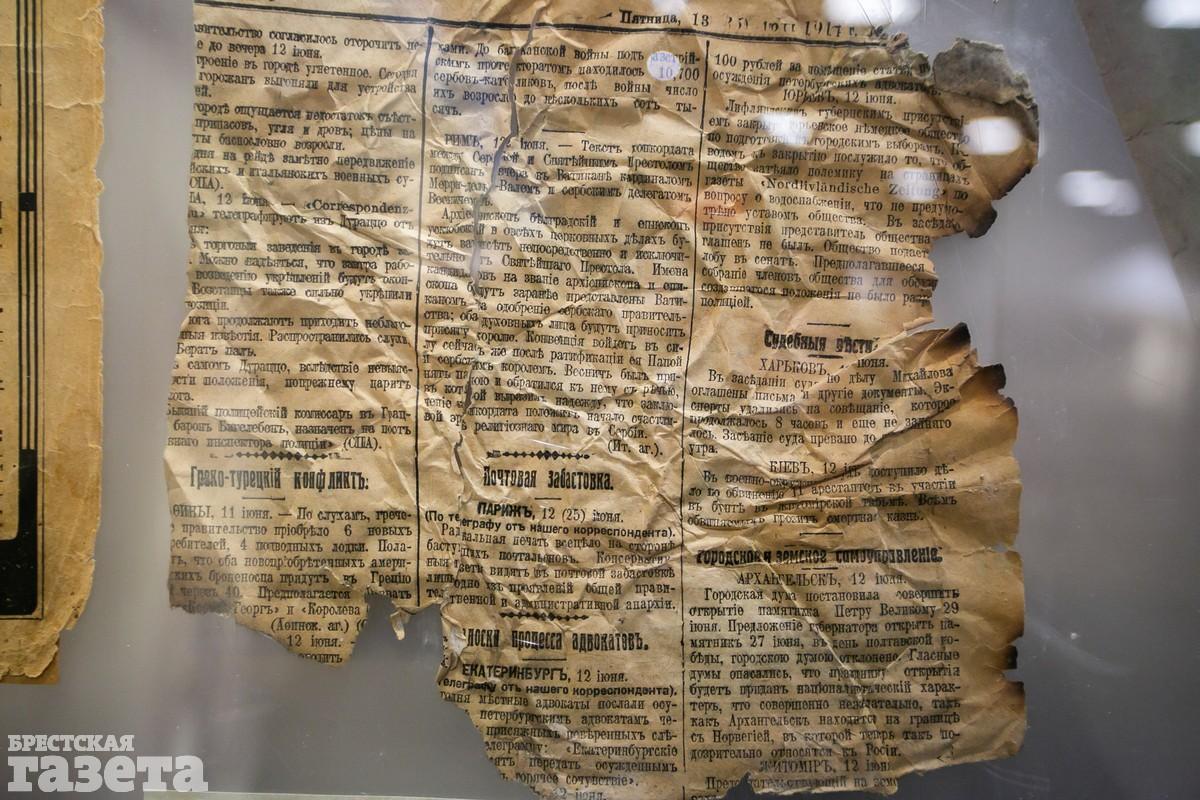 Пятница, 13
вительство согласилось отсрочить
е до вечера 12 іюня.
роеніе въ городѣ угнетенное. Сегодня
горожанъ выгоняли для устройства
ей.
городѣ ощущается недостатокъ съѣст-
припасовъ, угля и дровъ; цѣны на
ты баснословно возросли.
дня на рейдѣ замѣтно передвиженіе
йскихъ и итальянскихъ военныхъ су-
(СПА).
А, 12 іюня. — «Correspondenz-
телеграфируютъ изъ Дураццо отъ
ня:
торговыя заведенія въ городѣ
Можно надѣяться, что завтра рабо-
возведенію укрѣпленій будутъ окон-
Возставцы также сильно укрѣпили
позиціи.
юга продолжаютъ приходить неблаго-
ныя извѣстія. Распространились слухи,
Бератъ палъ.
самомъ Дураццо, вслѣдствіе невыяс-
ости положенія, попрежнему царитъ
вога.
Бывшій полицейскій комиссаръ въ Грац-
баронъ Бигелебенъ, назначенъ на постъ
внаго инспектора полиціи» (СПА).
Греко-турецкій конфликтъ.
ѲИНЫ, 11 іюня. — По слухамъ, грече-
правительство пріобрѣло 6 новыхъ
ребителей, 4 подводныхъ лодки. Пола-
тъ, что оба новопріобрѣтенныхъ амери-
скихъ броненосца придутъ въ Грецію
черезъ 40. Предполагается
Георгъ» и «Королева
(Аѳинск. аг.)
12 іюня.
ками. До балканской войны подъ австрій-
скимъ протекторатомъ находилось 10,700
сербовъ-католиковъ, послѣ войны число
ихъ возросло до нѣсколькихъ сотъ ты-
сячъ.
РИМЪ, 12 іюня. — Текстъ конкордата
между Сербіей и Святѣйшимъ Престоломъ
подписанъ вчера въ Ватиканѣ кардиналомъ
Мерри-дель-Валемъ и сербскимъ делегатомъ
Весничемъ.
Архіепископъ бѣлградскій и епископъ
ускюбскій во всѣхъ церковныхъ дѣлахъ бу-
дутъ зависѣть непосредственно и исключи-
тельно отъ Святѣйшаго Престола. Имена
кандидатовъ на званіе архіепископа и епи-
скопа будутъ заранѣе представлены Вати-
каномъ на одобреніе сербскаго правитель-
ства; оба духовныхъ лица будутъ приносить
присягу королю. Конвенція войдетъ въ си-
лу сейчасъ же послѣ ратификаціи ея Папой
и сербскимъ королемъ. Весничъ былъ при-
нятъ Папою и обратился къ нему съ рѣчью,
въ которой выразилъ надежду, что заклю-
ченіе конкордата положитъ начало счастли-
вой эрѣ религіознаго мира въ Сербіи.
(Ит. аг.).
Почтовая забастовка.
ПАРИЖЪ, 12 (25) іюня.
(По телеграфу отъ нашего корреспондента).
Радикальная печать всецѣло на сторонѣ
бастующихъ почтальоновъ. Консерватив-
ныя газеты видятъ въ почтовой забастовкѣ
лишь одно изъ проявленій общей прави-
тельственной и административной анархіи.
лоски процесса адвокатовъ.
ЕКАТЕРИНБУРГЪ, 12 іюня.
телеграфу отъ нашего корреспондента).
годня мѣстные адвокаты послали осу-
петербургскимъ адвокатамъ че-
присяжныхъ повѣренныхъ слѣ-
елеграмму: «Екатеринбургскіе
ятъ передать осужденнымъ
горячее сочувствіе».
12 іюня.
100 рублей за помѣщеніе статьи
осужденія петербургскихъ адвокатовъ.
ЮРЬЕВЪ, 12 іюня.
Лифляндскимъ губернскимъ присутствi-
емъ закрыто юрьевское нѣмецкое общество
по подготовкѣ къ городскимъ выборамъ. По-
водомъ къ закрытію послужило то, что об-
щество затѣяло полемику на страницахъ
газеты «Nordlivländische Zeitung» по
вопросу о водоснабженіи, что не предусмо-
трѣно уставомъ общества. Въ засѣда
присутствія представитель общества
глашенъ не былъ. Общество подаетъ
лобу въ сенатъ. Предполагавшееся
собраніе членовъ общества для обсу
создавшагося положенія не было раз
полиціей.
Судебныя вѣсти.
ХАРЬКОВЪ, іюня.
Въ засѣданіи суда по дѣлу Михайлова
оглашены письма и другіе документы. Экс-
сперты удалились на совѣщаніе, которое
продолжалось 8 часовъ и еще не закон
лось. Засѣданіе суда прервано до
утра.
КІЕВЪ, 12
Въ военно-окружн поступило дѣ-
ло по обвиненію 11 арестантовъ въ участіи
въ бунтѣ въ житомірской тюрьмѣ. Всѣмъ
обвиняемымъ грозитъ смертная казнь.
Городское и земское самоуправленіе.
АРХАНГЕЛЬСКЪ, 12 іюня.
Городская дума постановила совершить
открытіе памятника Петру Великому 29
іюня. Предложеніе губернатора открыть па-
мятникъ 27 іюня, въ день полтавской по-
бѣды, городскою думою отклонено. Гласные
думы опасались, что празднику открытія
будетъ приданъ націоналистическій харак-
теръ, что совершенно нежелательно, такъ
какъ Архангельскъ находится на границѣ
съ Норвегіей, въ которой теперь такъ по-
дозрительно относятся къ Россіи.
ЖИТОМІРЪ, 12 іюня
БРЕСТСКАЯ
газета